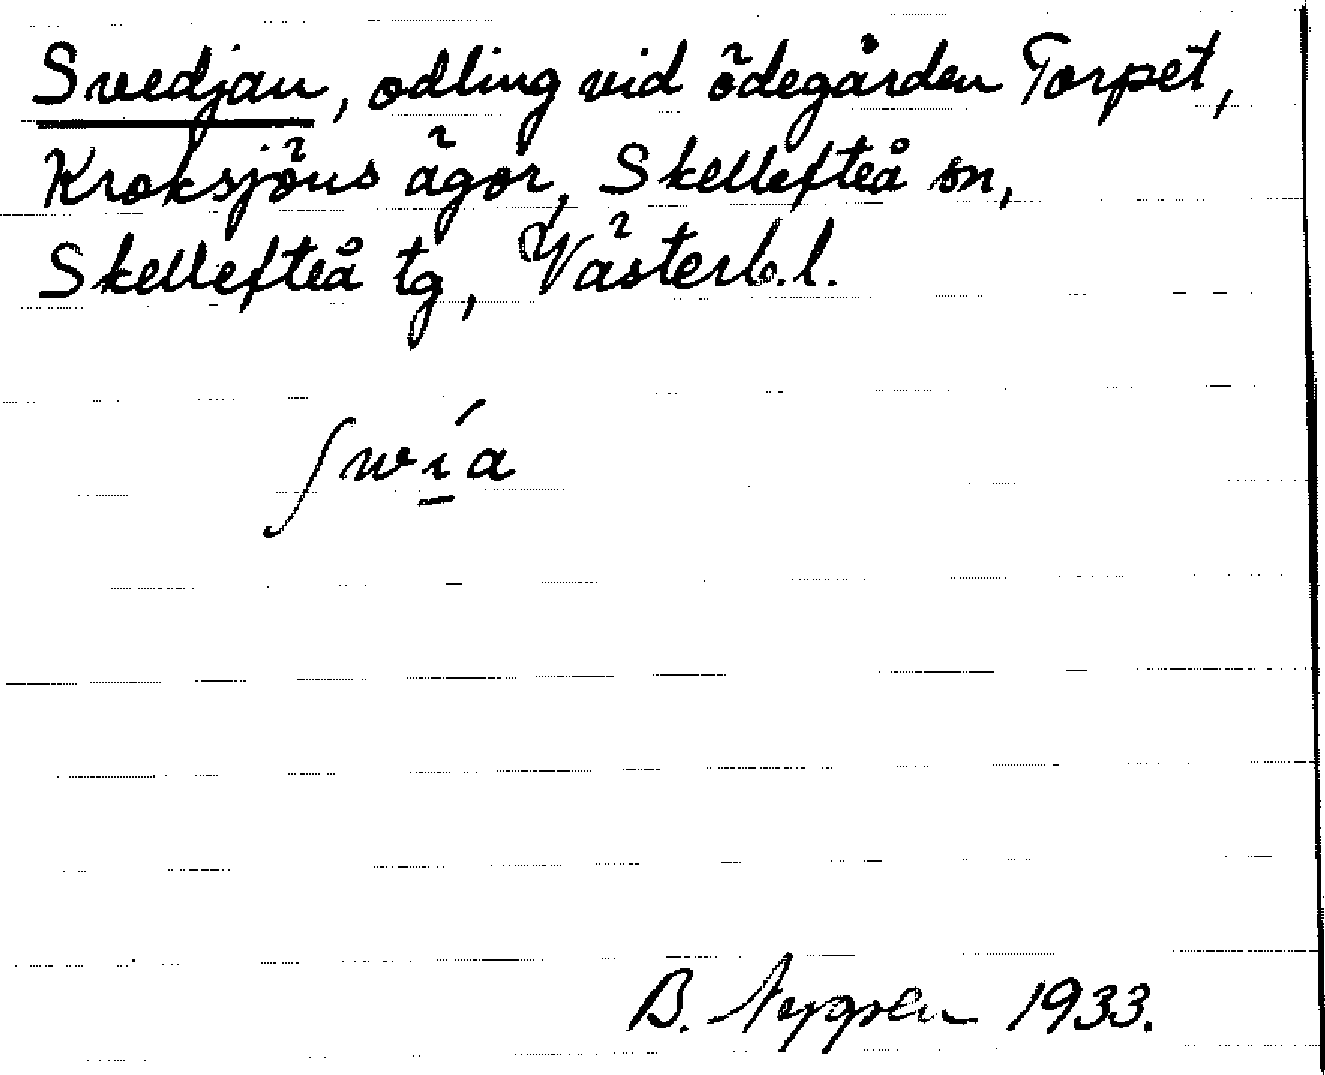 Svedjan, odling vid ödegården Torpet,
Kroksjöns ägor, Skellefteå sn,
Skellefteå tg, Västerb.l.
ʃwía
B. Nygren 1933.